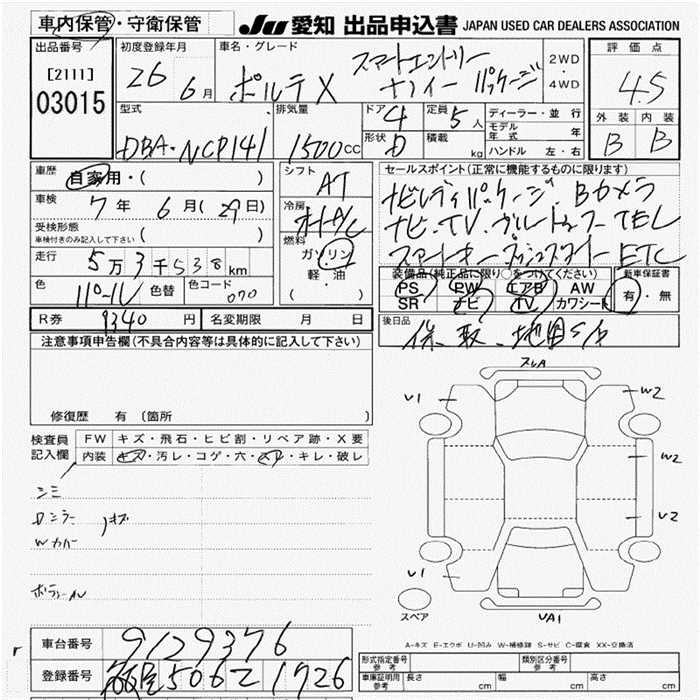 車内保管・守衛保管
JU 愛知 出品申込書 JAPAN USED CAR DEALERS ASSOCIATION
出品番号
[2111]
03015
初度登録年月
26 6月
車名・グレード
ポルテX スマートエントリー
ナノイー パッケージ
2WD
・
4WD
評価点
4.5
外装 内装
B B
型式
DBA・NCP141
排気量
1500cc
ドア 4
定員 5人
形状 D
積載 kg
ディーラー・並行
モデル年式 年
ハンドル 左・右
車歴
自家用・( )
車検
7年 6月(29日)
受検形態
車検付きのみ記入して下さい ( )
走行
5万3千538km
色
パール 色替
色コード
070
シフト
AT
冷房
オートA/C
燃料
ガソリン
軽・油
( ・ )
セールスポイント(正常に機能するものに限ります)
ナビレディパッケージ、Bカメラ
ナビ・TV、ブルートゥース TEL
スマートキー プッシュスタート ETC
装備品(純正品に限り○をつけてください)
PS PW エアB AW
SR ナビ TV カワシート
新車保証書
有・無
R券 9340円
名変期限 月 日
後日品
保、取、地図SD
注意事項申告欄(不具合内容等は具体的に記入して下さい)
修復歴 有〔箇所 〕
検査員
記入欄
FW キズ・飛石・ヒビ割・リペア跡・X要
内装 キズ・汚レ・コゲ・穴・スレ・キレ・破レ
シミ
Dミラー キズ
Wカバー
スレA
U1
W2
W2
U2
U1
UA1
スペア
A-キズ E-エクボ U-凹み W-補修跡 S-サビ C-腐食 XX-交換済
車台番号 9129376
登録番号 506 1726
形式指定番号
参考
類別区分番号
参考
車庫証明用
参考
長さ cm
幅 cm
高さ cm